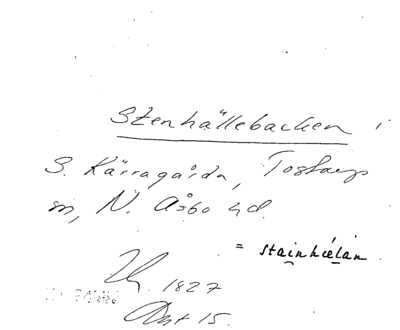 Stenhällebacken i
S. Kärragårda, Tostarps
sn, N. Åsbo hd.
= stainhɛlan
1827
15.